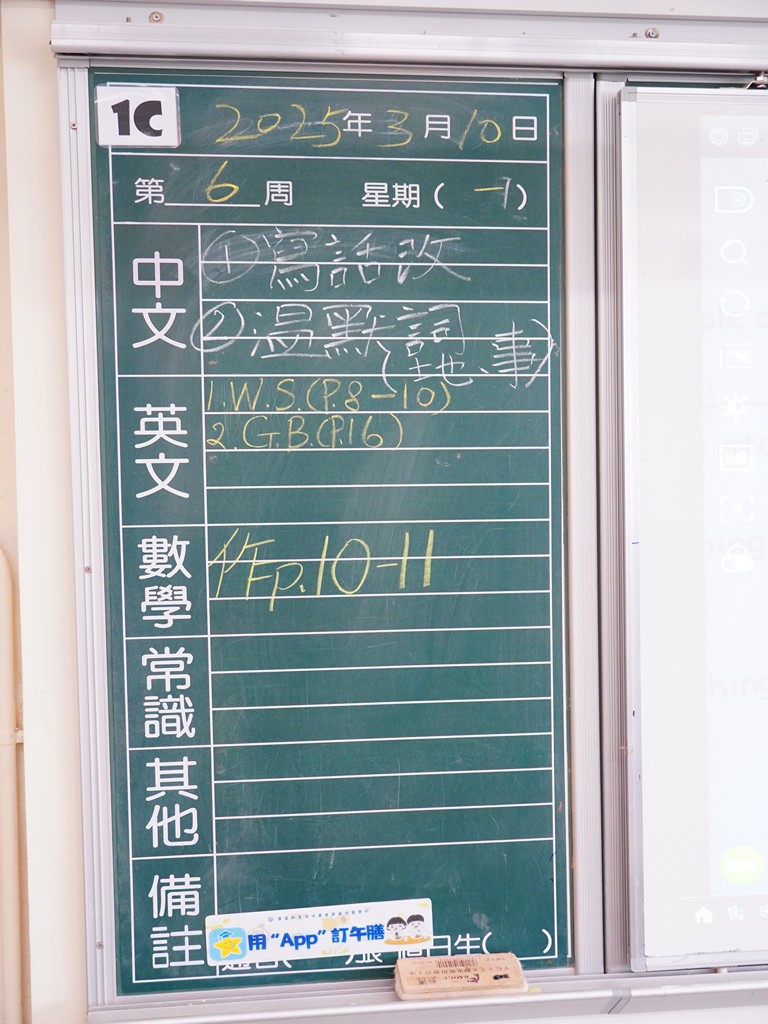 1C
2025年3月10日
第6周 星期(一)
中文
①寫話改
②温默詞
(土地、事)
英文
1.W.S.(P.8-10)
2.G.B.(P.16)
數學
作p.10-11
常識
其他
備註
用“App”訂午膳